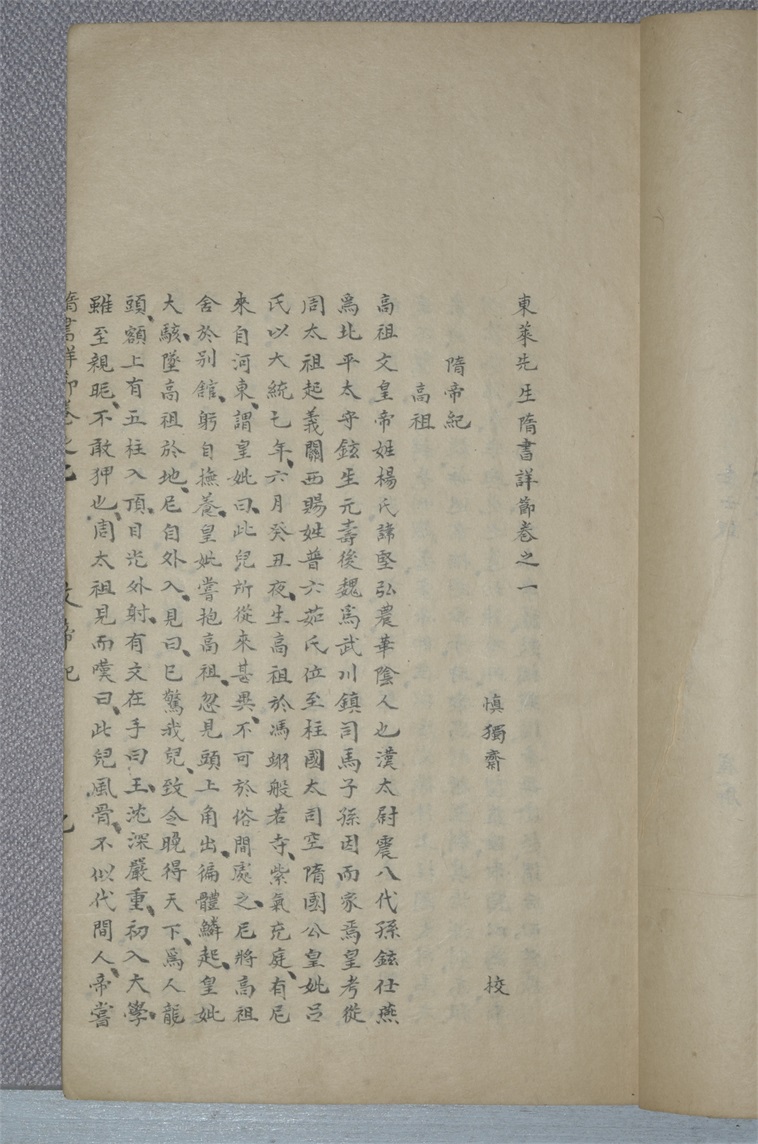 東萊先生隋書詳節卷之一
慎獨齋　校
隋帝紀
高祖
高祖文皇帝姓楊氏諱堅弘農華陰人也漢太尉震八代孫鉉仕燕
爲北平太守鉉生元壽後魏爲武川鎮司馬子孫因而家焉皇考從
周太祖起義關西賜姓普六茹氏位至柱國太司空隋國公皇妣呂
氏以大統七年六月癸丑夜生高祖於馮翊般若寺紫氣充庭有尼
來自河東謂皇妣曰此兒所從來甚異不可於俗間處之尼將高祖
舍於别館躬自撫養皇妣嘗抱高祖忽見頭上角出徧體鱗起皇妣
大駭墜高祖於地尼自外入見曰已驚我兒致令晚得天下爲人龍
頭額上有五柱入頂目光外射有文在手曰王沈深嚴重初入大學
雖至親昵不敢狎也周太祖見而嘆曰此兒風骨不似代間人帝嘗
隋書詳節卷之　帝紀